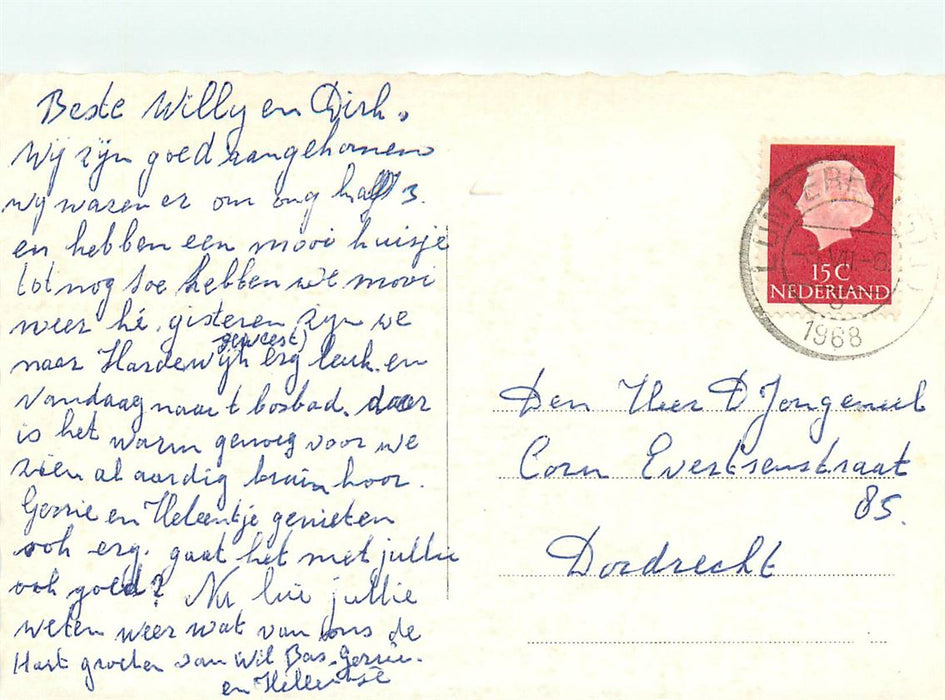 Beste Willy en Dirk.
Wij zijn goed aangekomen
wij waren er om ong half 3.
en hebben een mooi huisje
tot nog toe hebben we mooi
weer hé, gisteren zijn we
geweest)
naar Harderwijk erg leuk. en
vandaag naar t bosbad. daar
is het warm genoeg voor we
zien al aardig bruin hoor.
Gerrie en Heleentje genieten
ook erg. gaat het met jullie
ook goed? Nu jullie
weten weer wat van ons de
Hart groeten van Wil Bas. Gerrie.
en Heleentje
15C
NEDERLAND
1968
Den Heer D Jongeneel
Corn Evertsenstraat
85.
Dordrecht